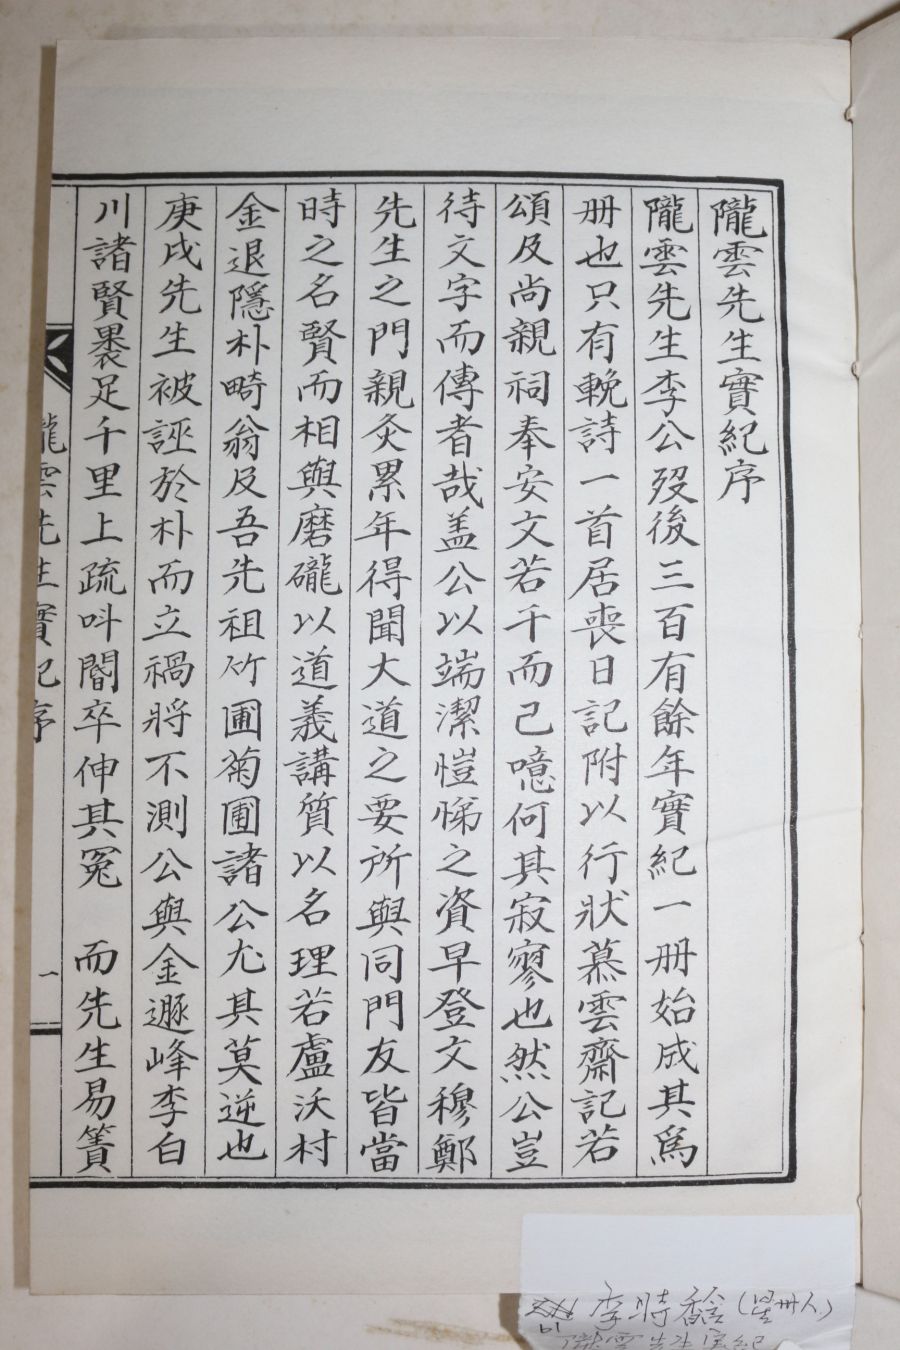 隴雲先生實紀序
隴雲先生李公歿後三百有餘年實紀一册始成其爲
册也只有輓詩一首居喪日記附以行狀慕雲齋記若
頌及尚親祠奉安文若干而已噫何其寂寥也然公豈
待文字而傳者哉盖公以端潔愷悌之資早登文穆鄭
先生之門親灸累年得聞大道之要所與同門友皆當
時之名賢而相與磨礲以道義講質以名理若盧沃村
金退隱朴畸翁及吾先祖竹圃菊圃諸公尤其莫逆也
庚戌先生被誣於朴而立禍將不測公與金遯峰李白
川諸賢褁足千里上疏呌閽卒伸其冤 而先生易簀
隴雲先生實紀序
一
李時馣(星州人)
隴雲先生實紀